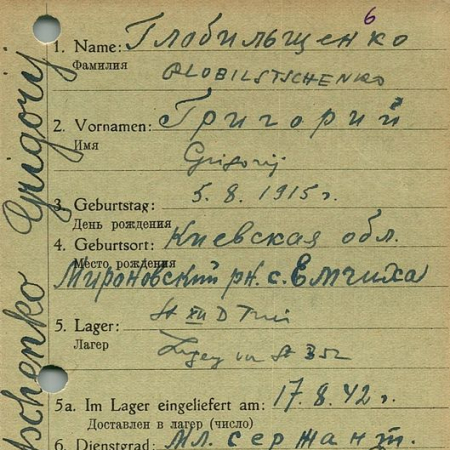 6
1. Name: Глобильщенко
Фамилия
GLOBILSTSCHENKO
2. Vornamen: Григорий
Имя
Grigorij
3. Geburtstag: 5.8.1915 г.
День рождения
4. Geburtsort: Киевская обл.
Место рождения
Мироновский рн. с. Емчиха
5. Lager: St XII D Trier
Лагер
5a. Im Lager eingeliefert am: 17.8.42 г.
Доставлен в лагер (число)
6. Dienstgrad: Мл. сержант.
tschenko Grigorij